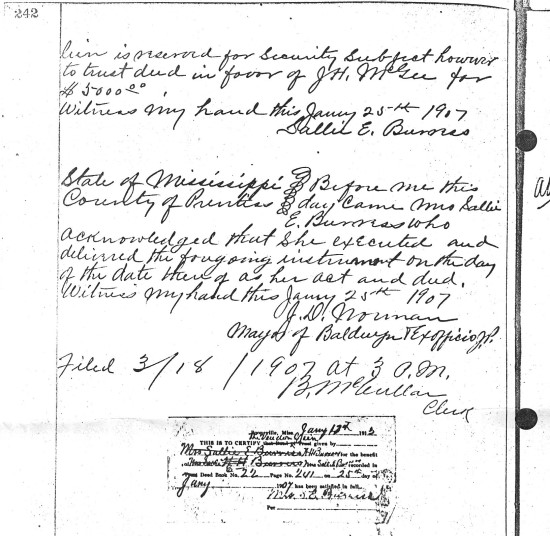 242
lien is reserved for Security Subject however
to trust deed in favor of J.H. McGee for
$5000.00
Witness my hand this Jany 25th 1907
Sallie E. Burress
State of Mississippi } Before me this
County of Prentiss } day came Mrs Sallie
E. Burress who
acknowledged that She executed and
delivered the foregoing instrument on the day
of the date thereof as her act and deed.
Witness my hand this Jany 25th 1907
J.D. Norman
Mayor of Baldwyn & Exofficio J.P.
Filed 3/18/1907 at 3 P.M.
Clerk
Booneville, Miss Jany 13th 191
THIS IS TO CERTIFY given by
Mrs Sallie E Burress for the benefit
recorded in
Trust Deed Book No. 22 Page No. 241 on 25th day of
Jany 1907 has been satisfied in full.
Per